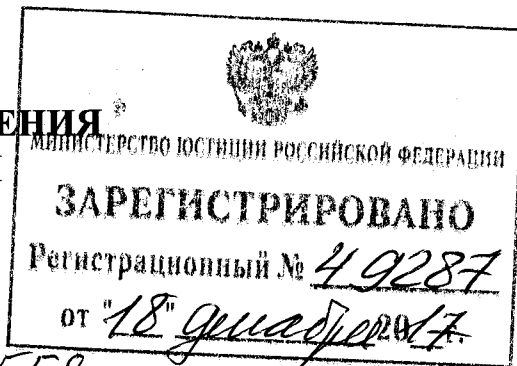 ЕНИЯ
МИНИСТЕРСТВО ЮСТИЦИИ РОССИЙСКОЙ ФЕДЕРАЦИИ
ЗАРЕГИСТРИРОВАНО
Регистрационный № 49287
от "18" декабря 2017 г.